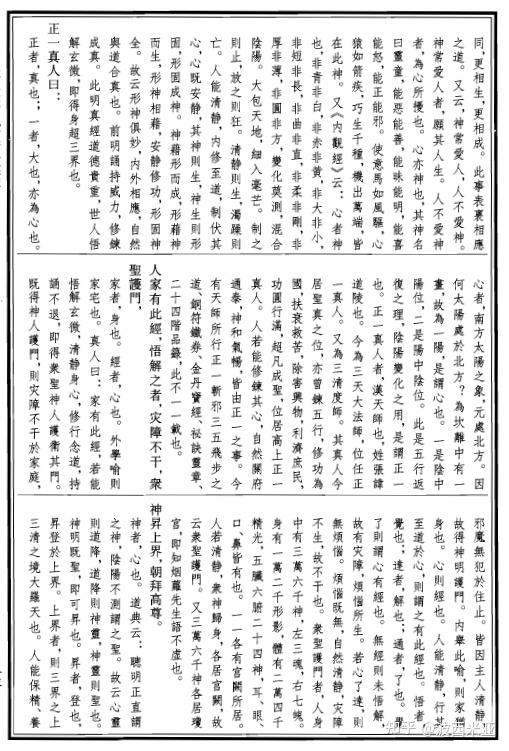 同，更相生，更相成。此事表裏相應
之道。又云，神常愛人，人不愛神。
神常愛人者，願其人生。人不愛神
者，為心所擾也。心亦神也，其神名
曰靈童，能惡能善，能昧能明，能喜
能怒，能正能邪。使意馬如風驅，心
猿如箭疾，巧生千種，機出萬端，皆
在此神。又《內觀經》云：心者神
也，非青非白，非赤非黃，非大非小，
非短非長，非曲非直，非柔非剛，非
厚非薄，非圓非方，變化莫測，混合
陰陽。大包天地，細入毫芒。制之
則止，放之則狂。清靜則生，濁躁則
亡。人能清靜，內修至道，制伏其
心，心既安靜，其神則生，神生則形
固，形固成神。神藉形而成，形藉神
而生，形神相藉，安靜修功，形固神
全。故云形神俱妙，內外相應，自然
與道合真也。前明誦持威力，修鍊
成真。此明真經道德貴重，世人悟
解玄微，即得身超三界也。
正一真人曰：
正者，真也；一者，大也，亦為心也。
心者，南方太陽之象，元處北方。因
何太陽處於北方？為坎離中有一
畫，故為一陽，是謂心也。一是陰中
陽位，二是陽中陰位。此是五行返
復之理，陰陽變化之用，是謂正一
也。正一真人者，漢天師也，姓張諱
道陵也。今為三天大法師，位任正
一真人。又為三清度師。其真人今
居聖真之位，亦曾鍊五行，修功為
國，扶衰救苦，除害興物，利濟庶民，
功圓行滿，超凡成聖，位居高上正一
真人。人若能修鍊其心，自然關府
通泰，神和氣暢，皆由正一之事。今
有天師所行正一斬邪三五飛步之
道，銅符鐵券、金丹寶經、祕訣靈章、
二十四階品籙，此不一一載也。
人家有此經，悟解之者，災障不干，眾
聖護門，
家者，身也。經者，心也。外學喻則
家宅也。真人曰：家有此經，若能
悟解玄微，清靜身心，修行念道，持
誦不退，即得眾聖神人護衛其門。
既得神人護門，則災障不干於家庭，
邪魔無犯於住止。皆因主人清靜，
故得神明護門。內舉此喻，則家猶
身也。心則經也。人能清靜，行其
至道於心，則謂之有此經也。悟者，
覺也；達者，解也；通者，了也。覺
了則謂心有經也。無經則未悟解，
故有災障，煩惱所生。若心了達，則
無煩惱。煩惱既無，自然清靜，災障
不生，故不干也。眾聖護門者，人身
中有三萬六千神，左三魂，右七魄。
身有一萬二千形影，體有二萬四千
精光，五臟六腑二十四神，耳、眼、
口、鼻皆有也。一一各有宮闕所居。
人若清靜，眾神歸身，各居宮闕，故
云眾聖護門。又三萬六千神各居瓊
宮，即知煙蘿先生語不虛也。
神昇上界，朝拜高尊。
神者，心也。道典云：聰明正直謂
之神，陰陽不測謂之聖。故云心靈
則道降，道降則神靈，神靈則聖也。
神明既聖，即可昇也。昇者，登也，
昇登於上界。上界者，則三界之上
三清之境大羅天也。人能保精、養
知乎 @波西米亚